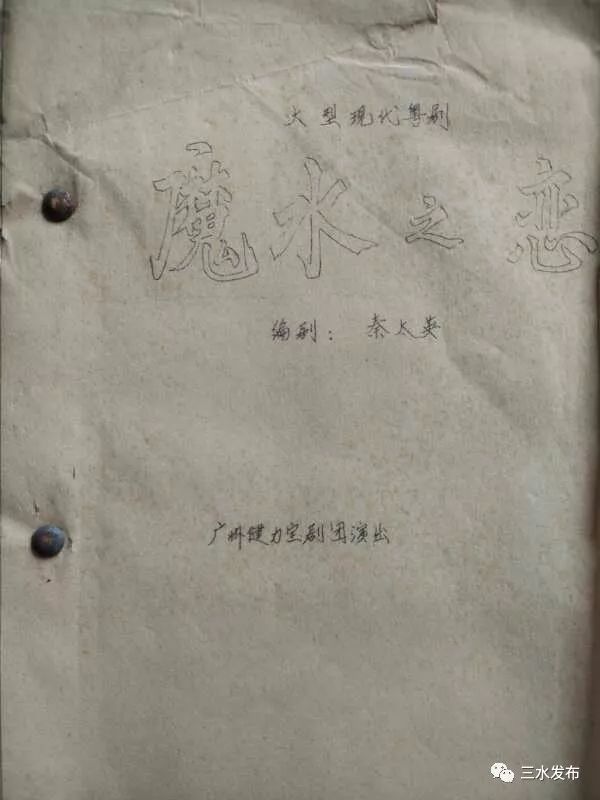 大型现代粤剧
魔水之恋
编剧：秦大英
广州健力宝剧团演出
三水发布